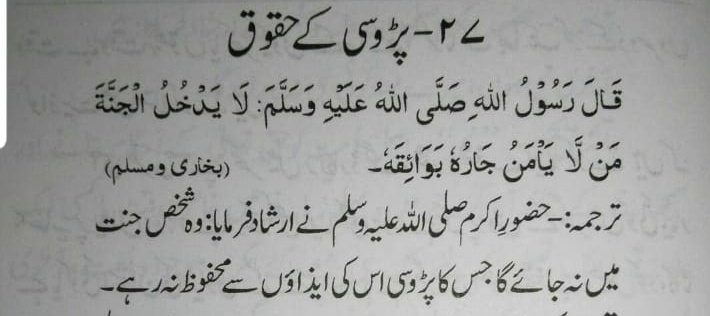 ۲۷- پڑوسی کے حقوق
قَالَ رَسُوْلُ اللهِ صَلَّى اللهُ عَلَيْهِ وَسَلَّمَ: لَا يَدْخُلُ الْجَنَّةَ
مَنْ لَّا يَاْمَنُ جَارُهٗ بَوَائِقَهٗ۔ (بخاری ومسلم)
ترجمہ:- حضورِ اکرم صلی اللہ علیہ وسلم نے ارشاد فرمایا: وہ شخص جنت
میں نہ جائے گا جس کا پڑوسی اس کی ایذاؤں سے محفوظ نہ رہے۔